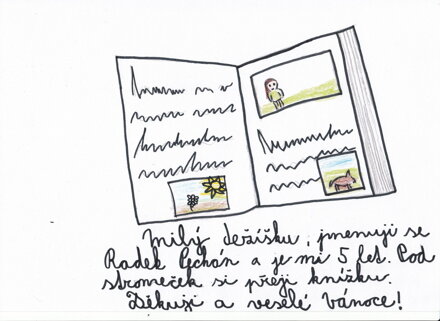 Milý Ježíšku, jmenuji se
Radek Pechán a je mi 5 let. Pod
stromeček si přeji knížku.
Děkuji a veselé Vánoce!